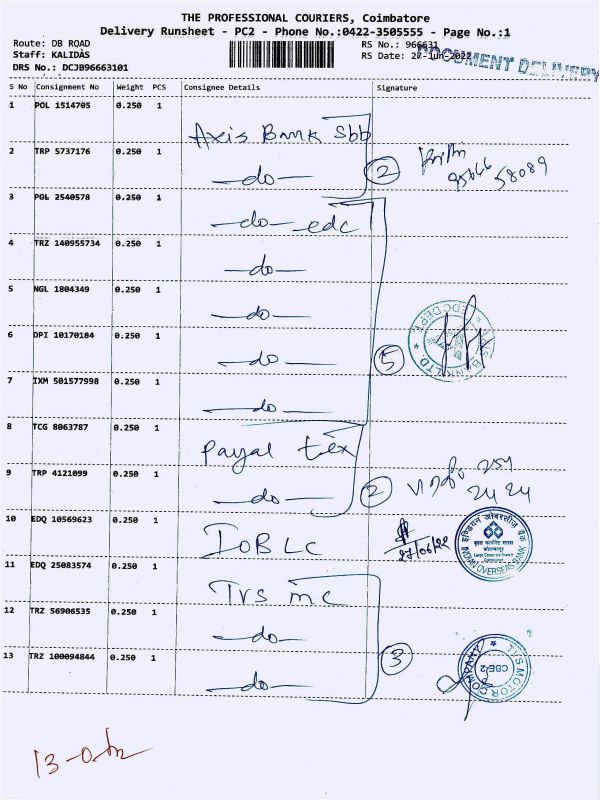 THE PROFESSIONAL COURIERS, Coimbatore
Delivery Runsheet - PC2 - Phone No.:0422-3505555 - Page No.:1
Route: DB ROAD RS No.: 966631
Staff: KALIDAS RS Date: 27-Jun-2022
DOCUMENT DELIVERY
DRS No.: DCJB96663101
S No Consignment No Weight PCS Consignee Details Signature
1 POL 1514705 0.250 1 Axis Bank Sbb
2 TRP 5737176 0.250 1 —do— 2
95666
58089
3 POL 2540578 0.250 1 —do— edc
4 TRZ 140955734 0.250 1 —do—
5 NGL 1804349 0.250 1 —do—
6 DPI 10170184 0.250 1 —do— 5
7 IXM 501577998 0.250 1 —do—
8 TCG 8063787 0.250 1 Payal tex
9 TRP 4121099 0.250 1 —do— 2
2424
10 EDQ 10569623 0.250 1 IOB LC 27/06/22
इण्डियन ओवरसीज़ बैंक
INDIAN OVERSEAS BANK
11 EDQ 25083574 0.250 1 TVS mc
12 TRZ 56906535 0.250 1 —do—
13 TRZ 100094844 0.250 1 —do— 3
TVS MOTOR COMPANY
CBE-2